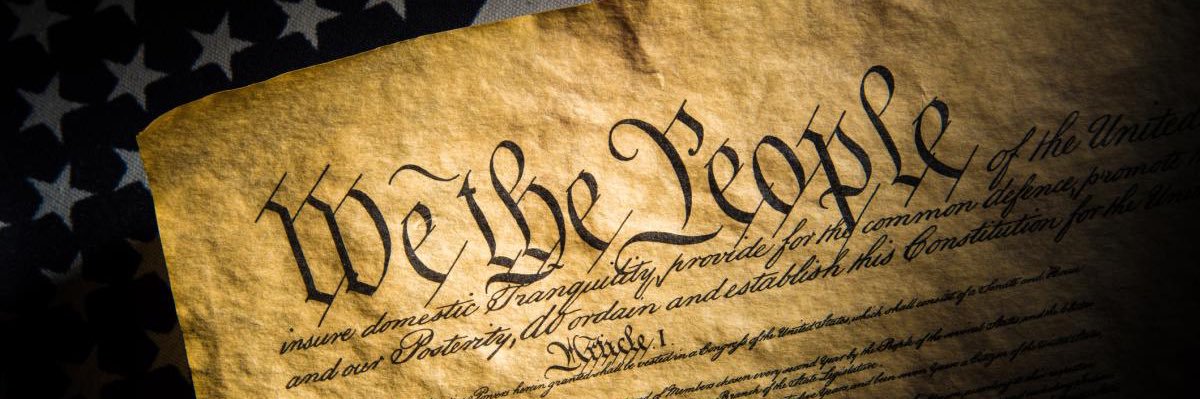 We the People of the United
insure domestic Tranquility, provide for the common defence, promote
and our Posterity, do ordain and establish this Constitution for the Uni
Article. I
Powers herein granted shall be vested in a Congress of the United States, which shall consist of a Senate and House
of Members chosen every second Year by the People of the several States, and the
Branch of the State Legislature.
Years, and been seven Years a Citizen of the United States,